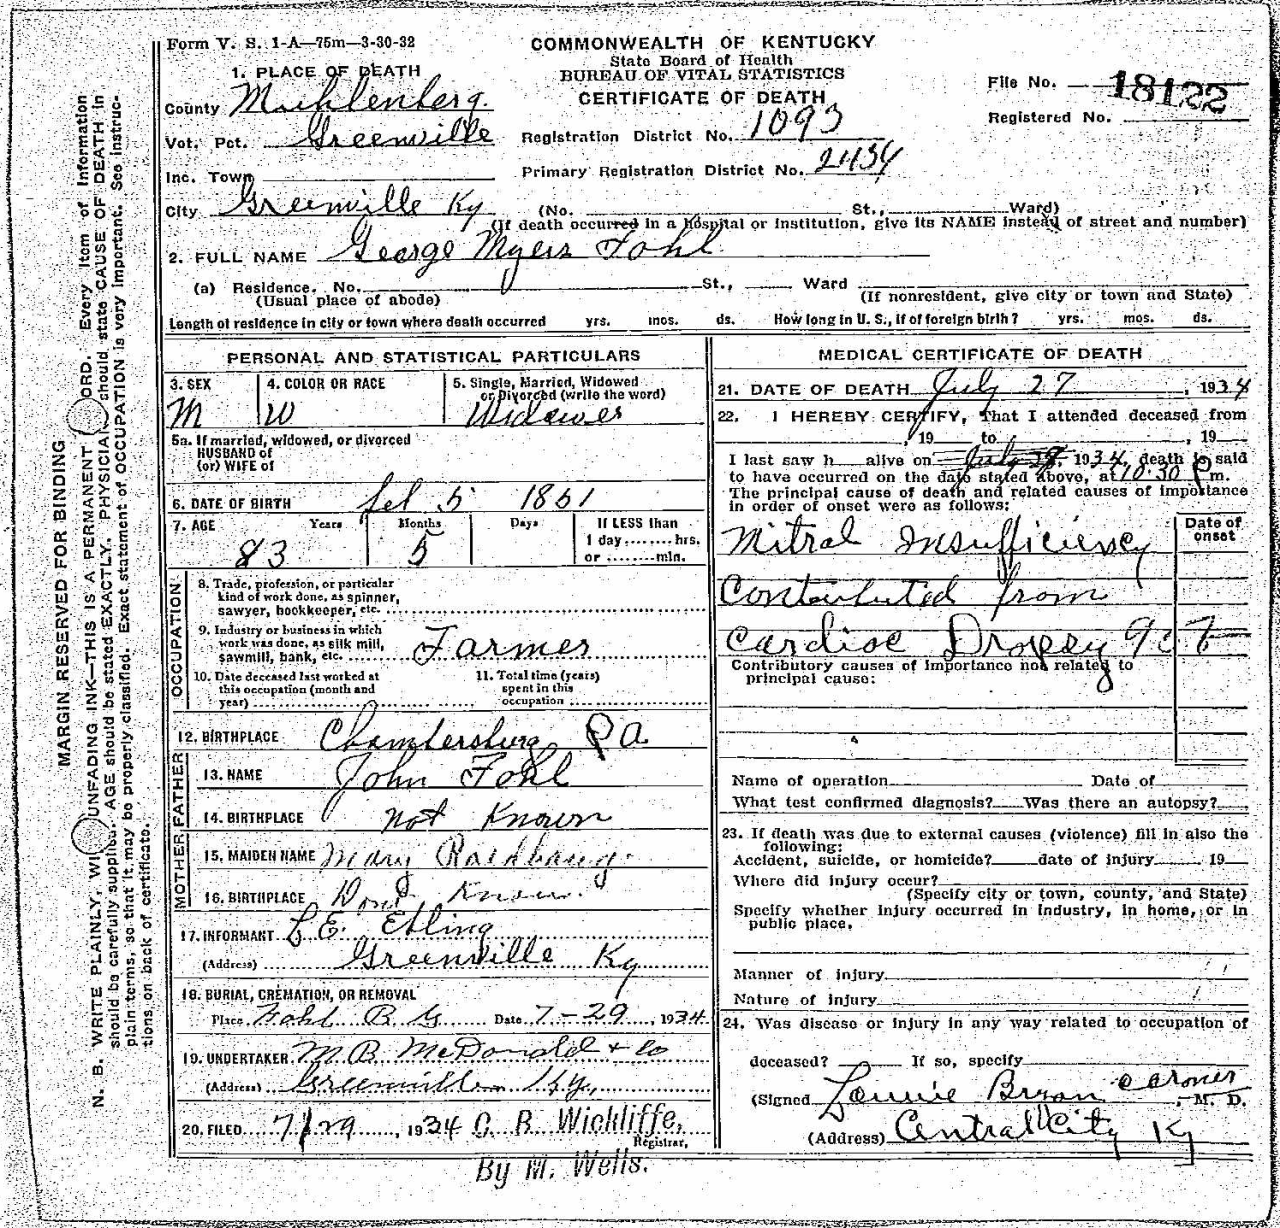 Form V. S. 1-A—75m—3-30-32
COMMONWEALTH OF KENTUCKY
State Board of Health
BUREAU OF VITAL STATISTICS
CERTIFICATE OF DEATH
File No. 18122
Registered No.
1. PLACE OF DEATH
County Muhlenberg.
Vot. Pct. Greenville
Registration District No. 1093
Inc. Town
Primary Registration District No. 2434
City Greenville Ky (No. St., Ward)
(If death occurred in a hospital or institution, give its NAME instead of street and number)
2. FULL NAME George Myers Fohl
(a) Residence. No. St., Ward
(Usual place of abode) (If nonresident, give city or town and State)
Length of residence in city or town where death occurred yrs. mos. ds. How long in U. S., if of foreign birth? yrs. mos. ds.
PERSONAL AND STATISTICAL PARTICULARS
3. SEX M
4. COLOR OR RACE W
5. Single, Married, Widowed or Divorced (write the word)
Widower
5a. If married, widowed, or divorced
HUSBAND of
(or) WIFE of
6. DATE OF BIRTH Feb 5 1851
7. AGE Years Months Days If LESS than
1 day........hrs.
or ........min.
83 5
OCCUPATION
8. Trade, profession, or particular
kind of work done, as spinner,
sawyer, bookkeeper, etc.
9. Industry or business in which
work was done, as silk mill,
sawmill, bank, etc. Farmer
10. Date deceased last worked at
this occupation (month and
year)
11. Total time (years)
spent in this
occupation
12. BIRTHPLACE Chambersburg Pa
FATHER
13. NAME John Fohl
14. BIRTHPLACE not Known
MOTHER
15. MAIDEN NAME Mary
16. BIRTHPLACE Dont Know.
17. INFORMANT C.E. Etling
(Address) Greenville Ky
18. BURIAL, CREMATION, OR REMOVAL
Place Fohl B G Date 7-29, 1934
19. UNDERTAKER M.B. McDonald + Co
(Address) Greenville Ky,
20. FILED 7/29, 1934 C. B. Wickliffe,
Registrar.
By M. Wells.
MEDICAL CERTIFICATE OF DEATH
21. DATE OF DEATH July 27, 1934
22. I HEREBY CERTIFY, That I attended deceased from
, 19 to , 19
I last saw h alive on July 28, 1934, death is said
to have occurred on the date stated above, at 10:30 Pm.
The principal cause of death and related causes of importance
in order of onset were as follows:
Date of onset
Mitral Insufficiency
Contributed from
Cardiac Dropsy
Contributory causes of importance not related to
principal cause:
Name of operation Date of
What test confirmed diagnosis? Was there an autopsy?
23. If death was due to external causes (violence) fill in also the
following:
Accident, suicide, or homicide? date of injury 19
Where did injury occur?
(Specify city or town, county, and State)
Specify whether injury occurred in industry, in home, or in
public place.
Manner of injury
Nature of injury
24. Was disease or injury in any way related to occupation of
deceased? If so, specify
(Signed Lonnie Bryan Coroner, M. D.
(Address) Central City Ky
MARGIN RESERVED FOR BINDING
N. B. WRITE PLAINLY, WI UNFADING INK—THIS IS A PERMANENT ORD. Every item of Information
should be carefully supplied. AGE should be stated EXACTLY. PHYSICIAN should state CAUSE OF DEATH in
plain terms, so that it may be properly classified. Exact statement of OCCUPATION is very important. See instruc-
tions on back of certificate.